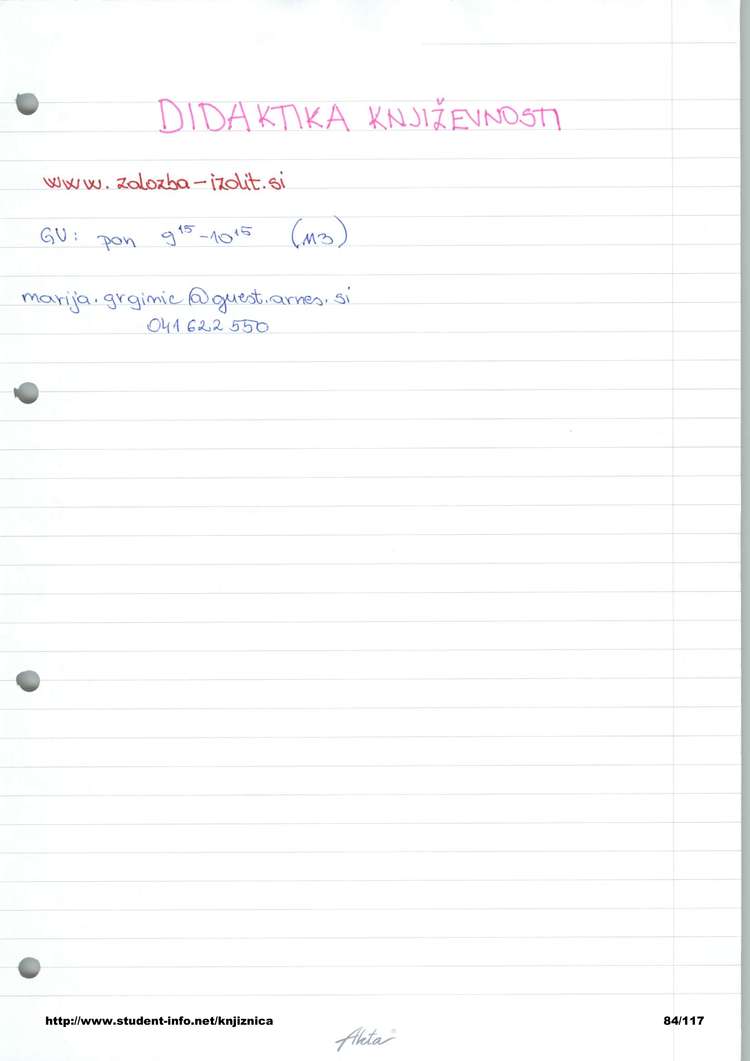 DIDAKTIKA KNJIŽEVNOSTI
www.zalozba-izolit.si
GU: pon 9¹⁵-10¹⁵ (M3)
marija.grginic@guest.arnes.si
041 622 550
http://www.student-info.net/knjiznica 84/117
Akta®